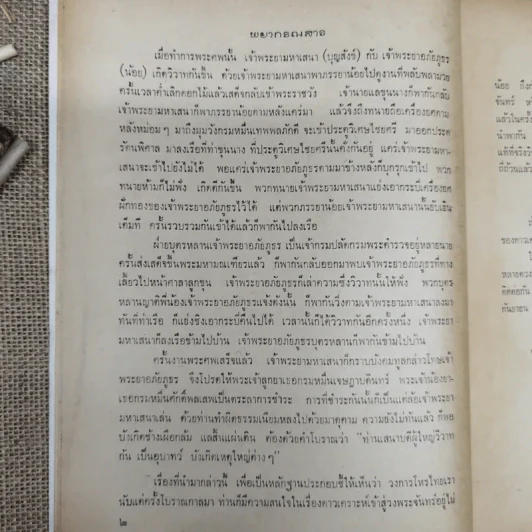 พยากรณสาร
เมื่อทำการพระศพนั้น เจ้าพระยามหาเสนา (บุญสังข์) กับ เจ้าพระยาอภัยภูธร
(น้อย) เกิดวิวาทกันขึ้น ด้วยเจ้าพระยามหาเสนาพาภรรยาน้อยไปดูงานที่พลับพลามวย
ครั้นเวลาค่ำเลิกดอกไม้แล้วเสด็จกลับเข้าพระราชวัง เจ้านายแลขุนนางก็พากันกลับ
เจ้าพระยามหาเสนาก็พาภรรยาน้อยตามหลังแคร่มา แล้วจึงถึงทนายถือเครื่องยศตาม
หลังหม่อมๆ มาถึงมุมวังกรมหมื่นเทพพลภักดี จะเข้าประตูวิเศษไชยศรี มาออกประตู
รัตนพิศาล มาลงเรือที่ท่าขุนนาง ที่ประตูวิเศษไชยศรีนั้นคั่งกันอยู่ แคร่เจ้าพระยามหา-
เสนาจะเข้าไปยังไม่ได้ พอแคร่เจ้าพระยาอภัยภูธรตามมาข้างหลังก็บุกรุกเข้าไป พวก
ทนายห้ามก็ไม่ฟัง เกิดตีกันขึ้น พวกทนายเจ้าพระยามหาเสนาแย่งเอากระบี่เครื่องยศ
ฝักทองของเจ้าพระยาอภัยภูธรไว้ได้ แต่พวกภรรยาน้อยเจ้าพระยามหาเสนานั้นยับเยิน
เต็มที ครั้นรวบรวมกันเข้าได้แล้วก็พากันไปลงเรือ
ฝ่ายบุตรหลานเจ้าพระยาอภัยภูธร เป็นเจ้ากรมปลัดกรมพระตำรวจอยู่หลายนาย
ครั้นส่งเสด็จขึ้นพระมหามณเฑียรแล้ว ก็พากันกลับออกมาพบเจ้าพระยาอภัยภูธรที่ทาง
เลี้ยวไปหน้าศาลาลูกขุน เจ้าพระยาอภัยภูธรก็เล่าความซึ่งวิวาทนั้นให้ฟัง พวกบุตร
หลานญาติพี่น้องเจ้าพระยาอภัยภูธรแจ้งดังนั้น ก็พากันวิ่งตามเจ้าพระยามหาเสนาลงมา
ทันที่ท่าเรือ ก็แย่งชิงเอากระบี่คืนไปได้ เวลานั้นก็ได้วิวาทกันอีกครั้งหนึ่ง เจ้าพระยา
มหาเสนาก็ลงเรือข้ามไปบ้าน เจ้าพระยาอภัยภูธรบุตรหลานก็พากันข้ามไปบ้าน
ครั้นงานพระศพเสร็จแล้ว เจ้าพระยามหาเสนาก็กราบบังคมทูลกล่าวโทษเจ้า
พระยาอภัยภูธร จึงโปรดให้พระเจ้าลูกยาเธอกรมหมื่นเจษฎาบดินทร์ พระเจ้าน้องยา-
เธอกรมหมื่นศักดิ์พลเสพเป็นตระลาการชำระ การที่ชำระกันนั้นก็เป็นแต่ล้อเจ้าพระยา
มหาเสนาเล่น ด้วยท่านทำผิดธรรมเนียมหลงไปด้วยมาตุคาม ความยังไม่ทันแล้ว ก็พอ
บังเกิดช้างเผือกล้ม แลสิ้นแผ่นดิน ต้องด้วยคำโบราณว่า “ท่านเสนาบดีผู้ใหญ่วิวาท
กัน เป็นอุบาทว์ บังเกิดเหตุใหญ่ต่างๆ”
เรื่องที่นำมากล่าวนี้ เพื่อเป็นหลักฐานประกอบชี้ให้เห็นว่า วงการโหรไทยเรา
นับแต่ครั้งโบราณกาลมา ท่านก็มีความสนใจในเรื่องดาวเคราะห์เข้าสู่วงพระจันทร์อยู่ไม่
๒
น้อย ถึงก
จันทร์
แล้วในครั้
นำพากัน
แท้ที่จริงว
ถี่ถ้วนแล้ว
ของดาวเค
หลายดวง
ติดต่อกัน
กันยายน